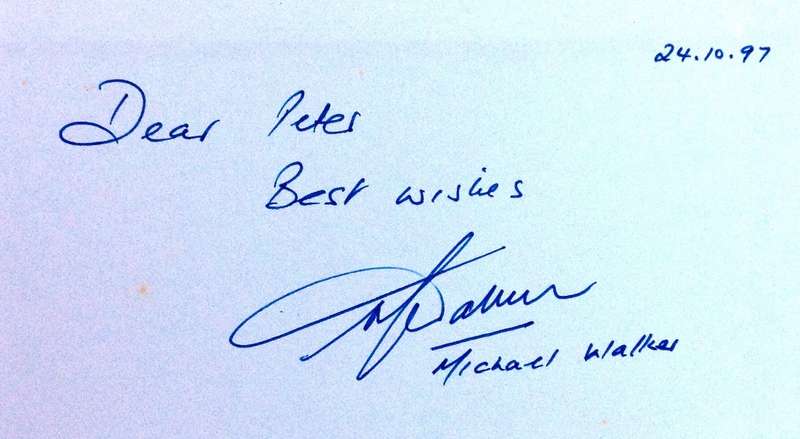 24.10.97
Dear Peter
Best wishes
MWalker
Michael Walker